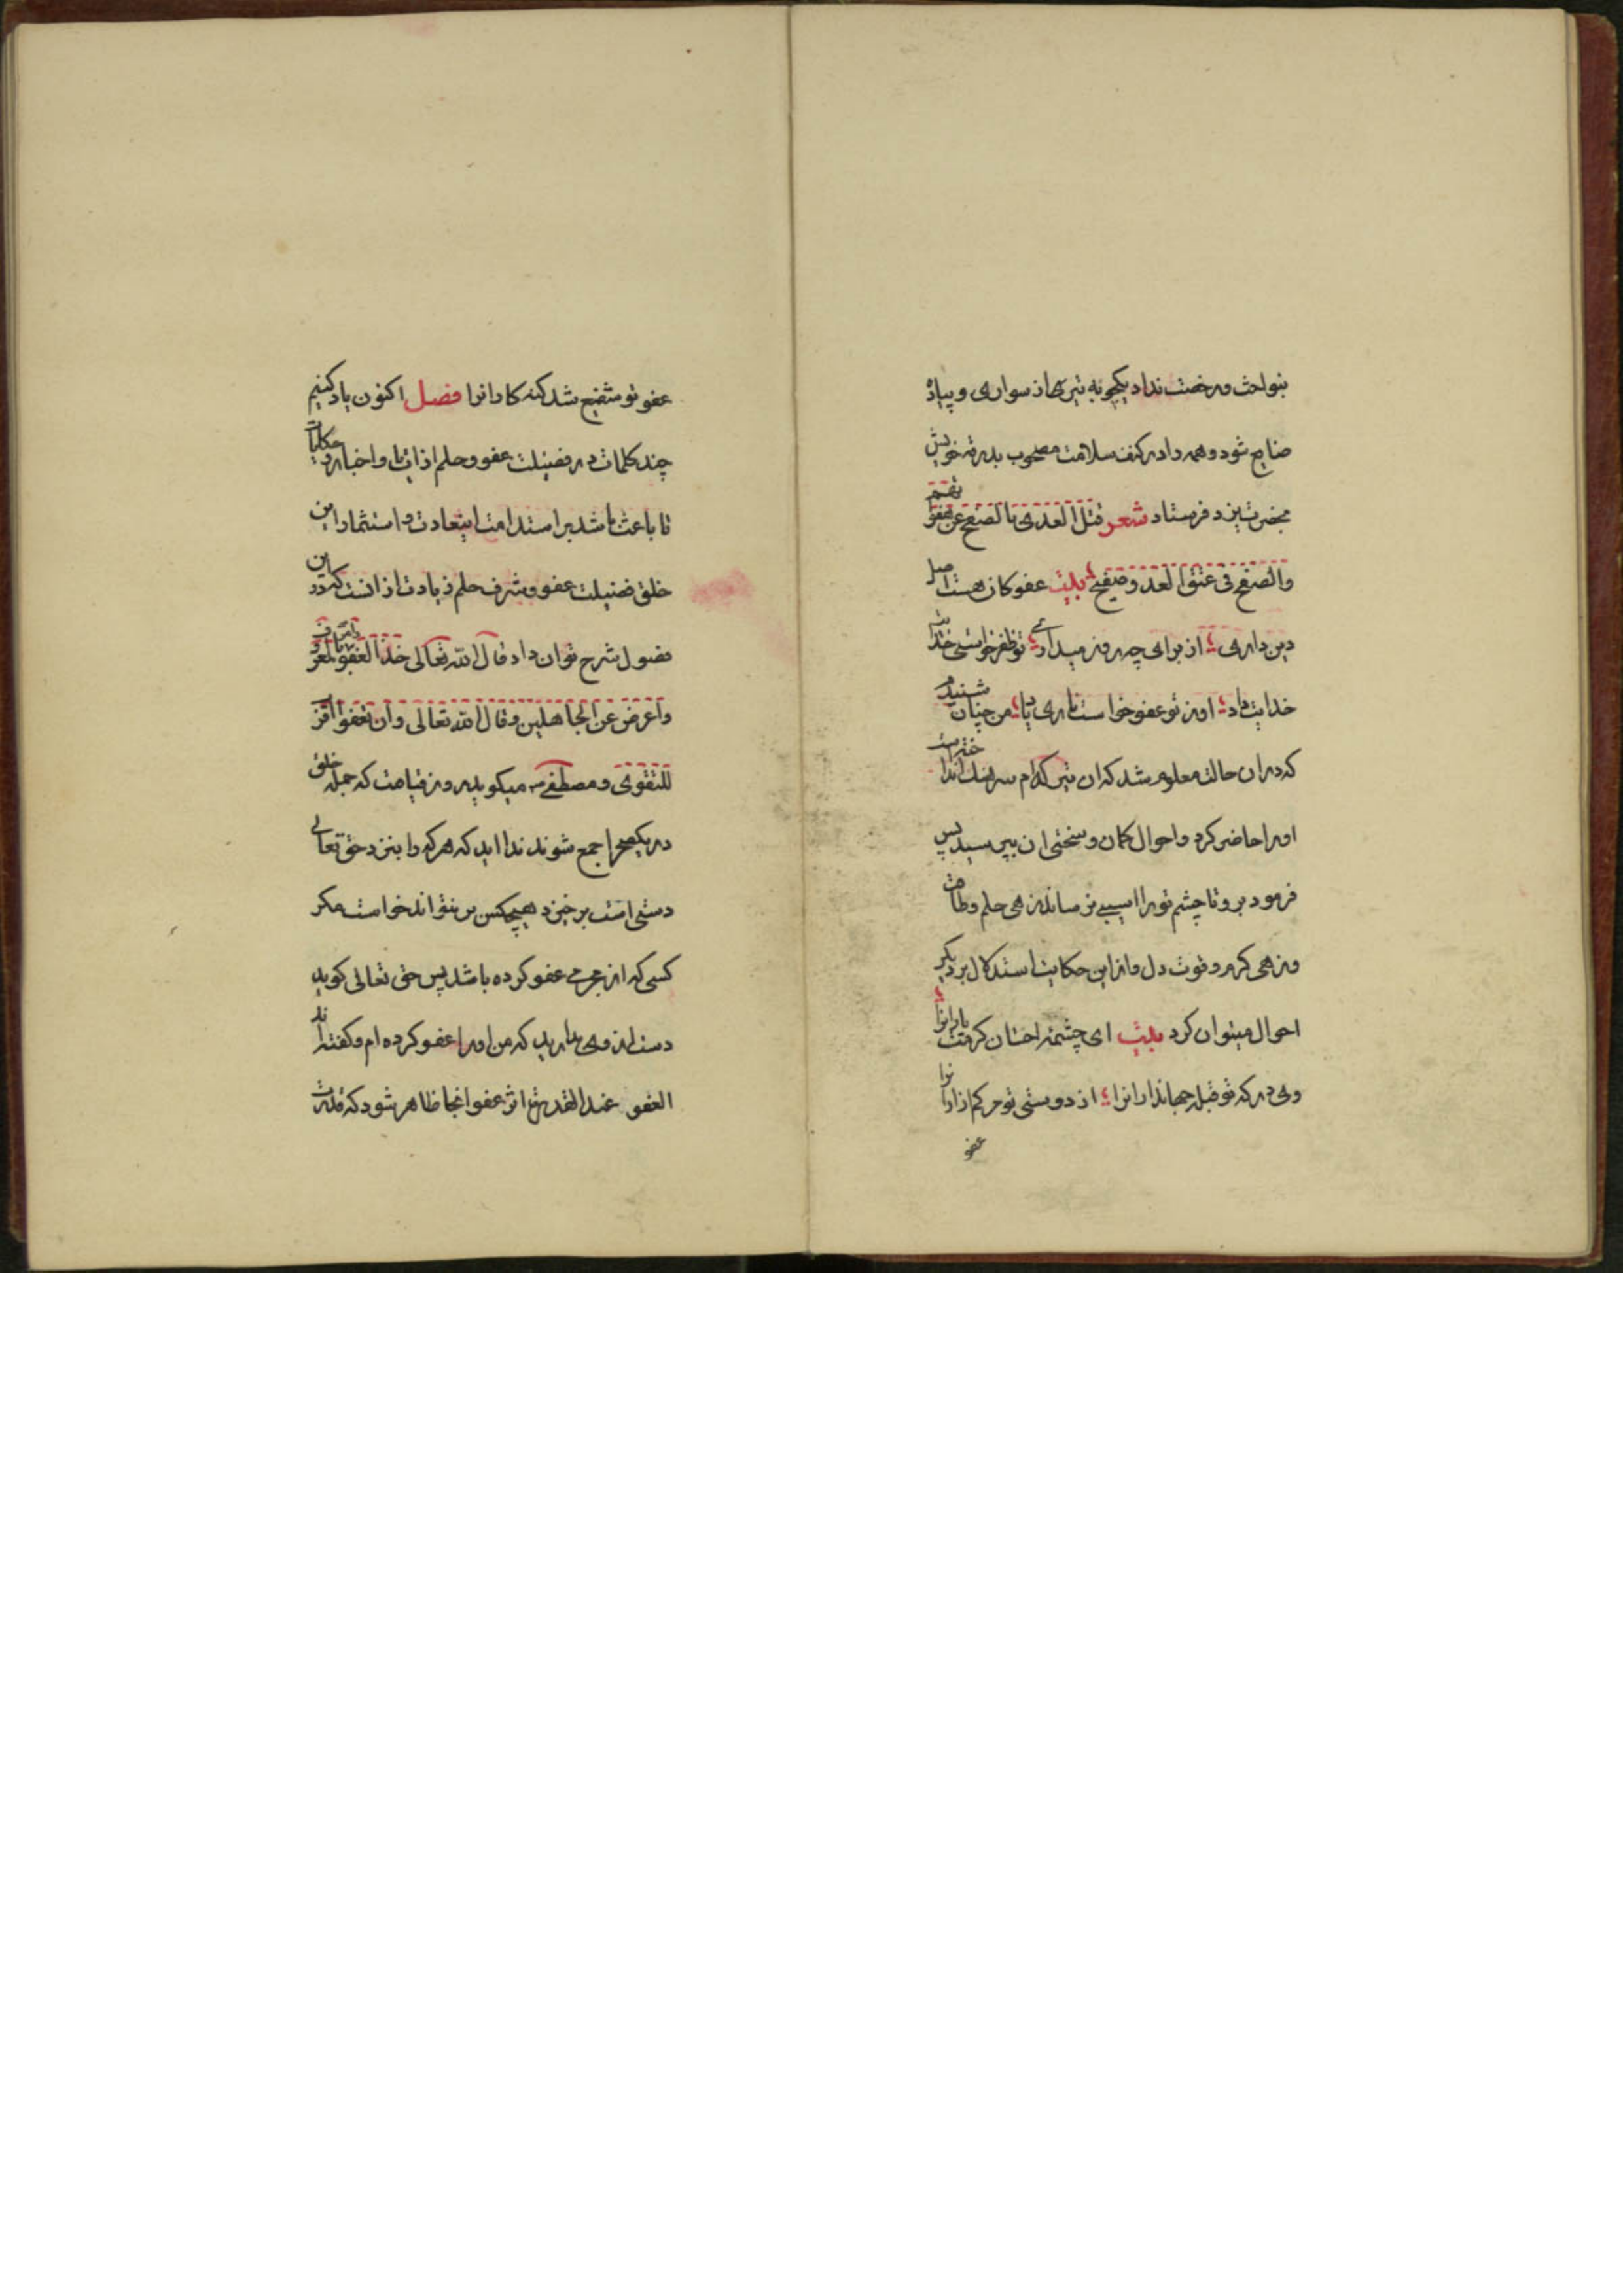 بنواخت و رخصت نداد یکچوبه تیری از سواری و پیاده
ضایع شود و همه را در کنف سلامت مصحوب بدرقه خویش
بحضرت یزد فرستاد شعر قتل العدی بالصفح عن هفواتهم
والصفح فی عنق العدو صفیح بیت عفو کان هست اصل
دین داری از برای چه روز میداری تو ظفر خواستی خدایت
خدایت داد او ز تو عفو خواست یاری باد من چنان شنیدم
که در آن حالت معلوم شد که آن تیر کدام سرهنک انداخته است
او را حاضر کرد و احوال کمان و سختی آن بپرسید پس
فرمود برو تا چشم تو را آسیبی نرسانند زهی حلم و
وزهی کرم و قوت دل و از این حکایت استدلال بر دیکر
احوال میتوان کرد بیت ای چشمه احسان کرمت یارانرا
وی در که تو قبله جهاندارانرا از دوستی تو
عفو
عفو تو شفیع شد کنه کارانرا فصل اکنون یاد کنیم
چند کلمات در فضیلت عفو و حلم از آیات و اخبار و حکایات
تا باعث باشد بر استدامت این عادت و استثمار این
خلق فضیلت عفو و شرف حلم زیادت از آنست که در این
فصول شرح توان داد قال الله تعالی خذ العفو وأمر بالعرف
وأعرض عن الجاهلین وقال الله تعالی وأن تعفوا أقرب
للتقوی و مصطفی میکوید روز قیامت که جمله خلق
در یک صحرا جمع شوند ندا آید که هر که را بنزد حق تعالی
دستی است برخیزد هیچکس بر نتواند خواست مکر
کسی که از جرمی عفو کرده باشد پس حق تعالی کوید
دست از وی بدارید که من او را عفو کرده ام و کفته اند
العفو عند القدرة اثر عفو آنجا ظاهر شود که قدرت